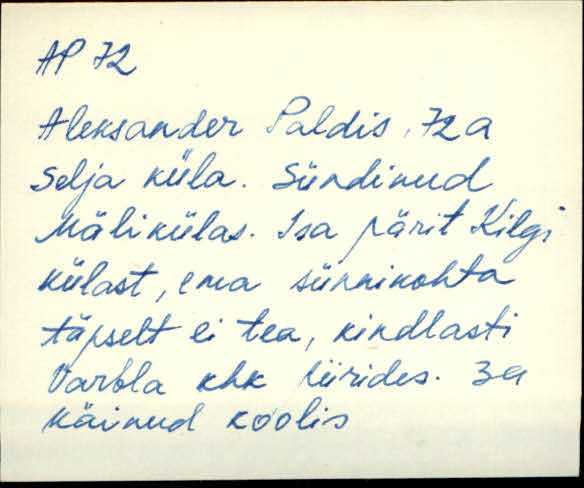 AP 72
Aleksander Paldis, 72 a
Selja küla. Sündinud
Mälikülas. Isa pärit Kilgi
külast, ema sünnikohta
täpselt ei tea, kindlasti
Varbla khk piirides. 3 a
käinud koolis